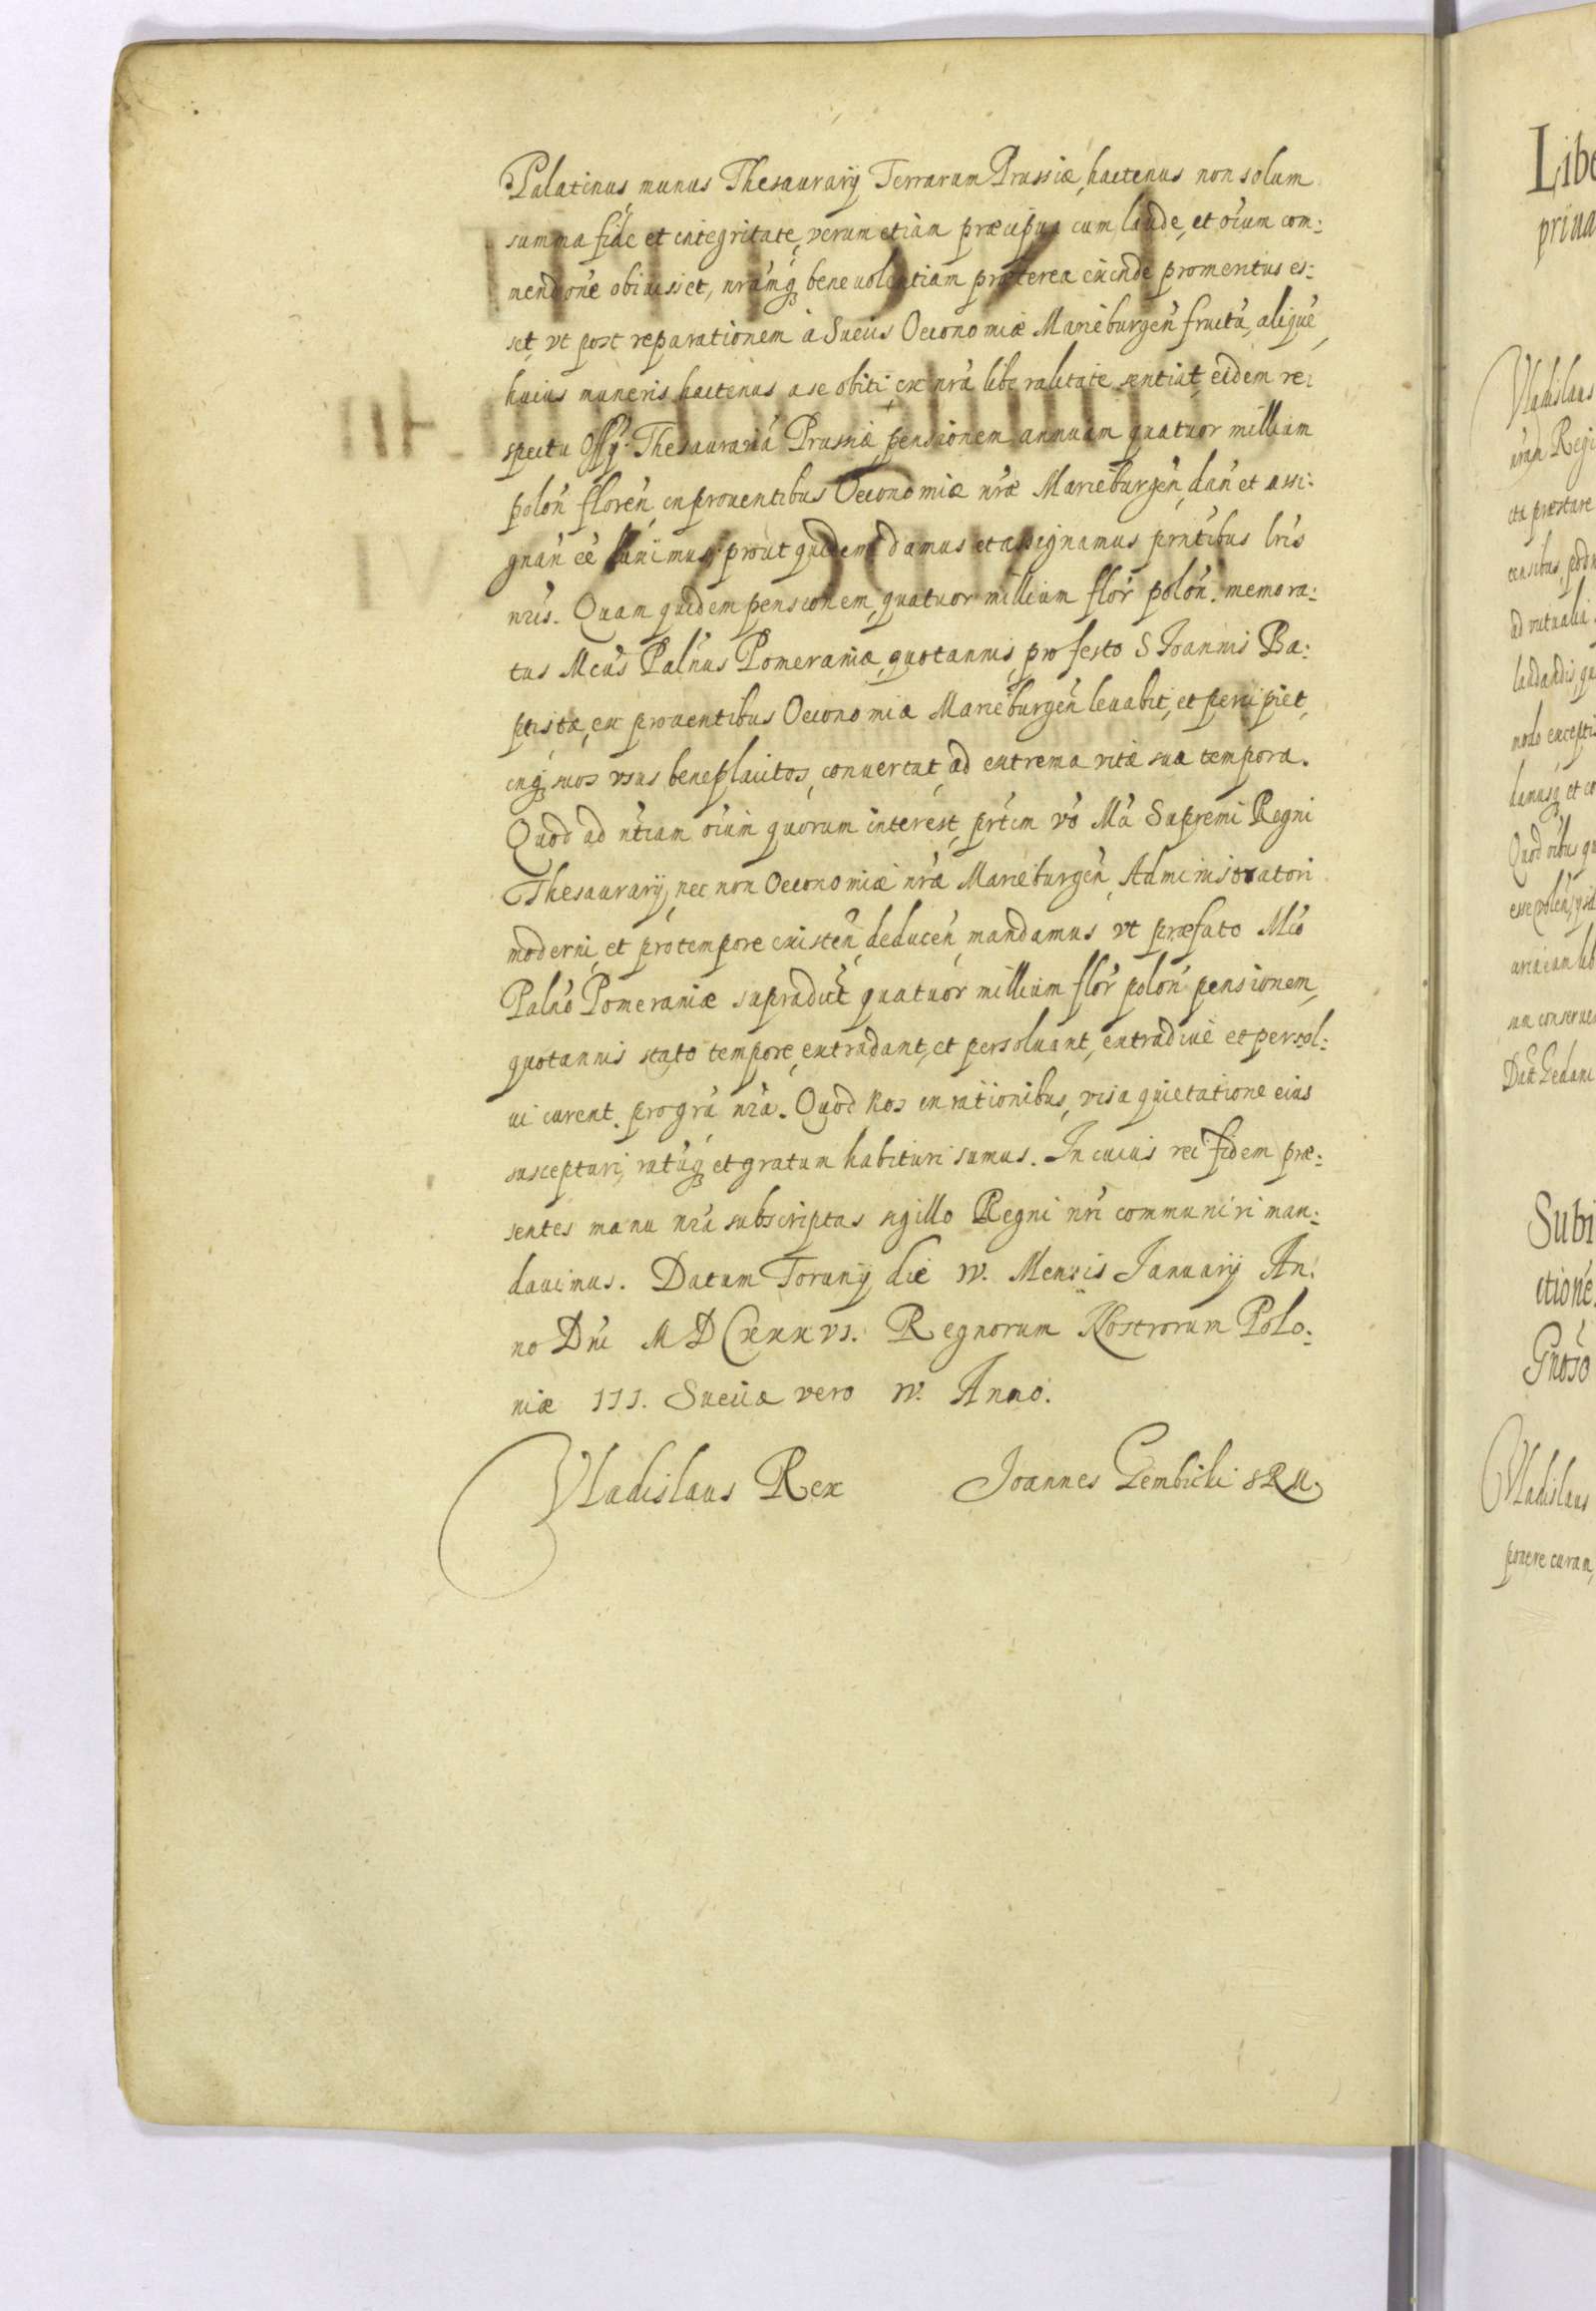 Palatinus, munus Thesaurarij Terrarum Prussiæ, hactenus non solum
summa fide et integritate, verum etiam præcipua cum laude, et oi͠um com:
mend͠one obiuisset, nr͠amq̃ beneuolentiam præterea exinde promeritus es:
set, vt post reparationem à Suecis Oeconomiæ Marieburgen͠ fructũ, aliquẽ,
huius muneris hactenus a se obiti, ex nr͠a liberalitate sentiat, eidem re:
spectu Offij Thesaurariũ Prussiæ, pensionem annuam quatuor millium
polon͠ floren͠, in prouentibus Oeconomiæ nr͠æ Marieburgen͠, dan͠ et assi:
gnan͠ eẽ duximus, prout quidem damus et assignamus pn͠tibus lr͠is
nr͠is. Quam quidem pensionem, quatuor millium flor͠ polon͠. memora:
tus Mcus͠ Paln͠us Pomeraniæ, quotannis, pro festo S Joannis Ba:
ptistæ, ex prouentibus Oeconomiæ Marieburgen͠ leuabit, et percipiet,
inq̃ suos vsus beneplacitos, conuertat, ad extrema vitæ suæ tempora.
Quod ad nt͠iam oi͠um quorum interest, prt͠im vo͠ Ma͠ Supremi Regni
Thesaurarij, nec non Oeconomiæ nr͠æ Marieburgen͠, Administratori
moderni, et pro tempore existen͠, deducen͠, mandamus vt præfato Mco͠
Paln͠o Pomeraniæ supradict͠ quatuor millium flor͠ polon͠ pensionem,
quotannis stato tempore, extradant, et persoluant, extradiue et persol:
ui curent, pro gra͠ nr͠a. Quod Nos in rationibus, visa quietatione eius
suscepturi, ratũq̃ et gratum habituri sumus. In cuius rei fidem præ:
sentes manu nr͠a subscriptas sigillo Regni nr͠i communiri man:
dauimus. Datum Torunij die IV. Mensis Januarij An:
no Dn͠i MDCXXXVI. Regnorum Nostrorum Polo:
niæ III. Sueciæ vero IV. Anno.
Vladislaus Rex Joannes Gembicki SRM
Libe
priua
Vladislaus
nr͠am Regi
cta præstare
censibus,
ad victualia
laudandis qu
modo exceptis
damusq̃ et co
Quod oi͠bus qu
esse volen͠,
um conserue
Dat͠ Gedani
Subi
ctione͠
Gn͠oso
Vladislaus
ponere curam,